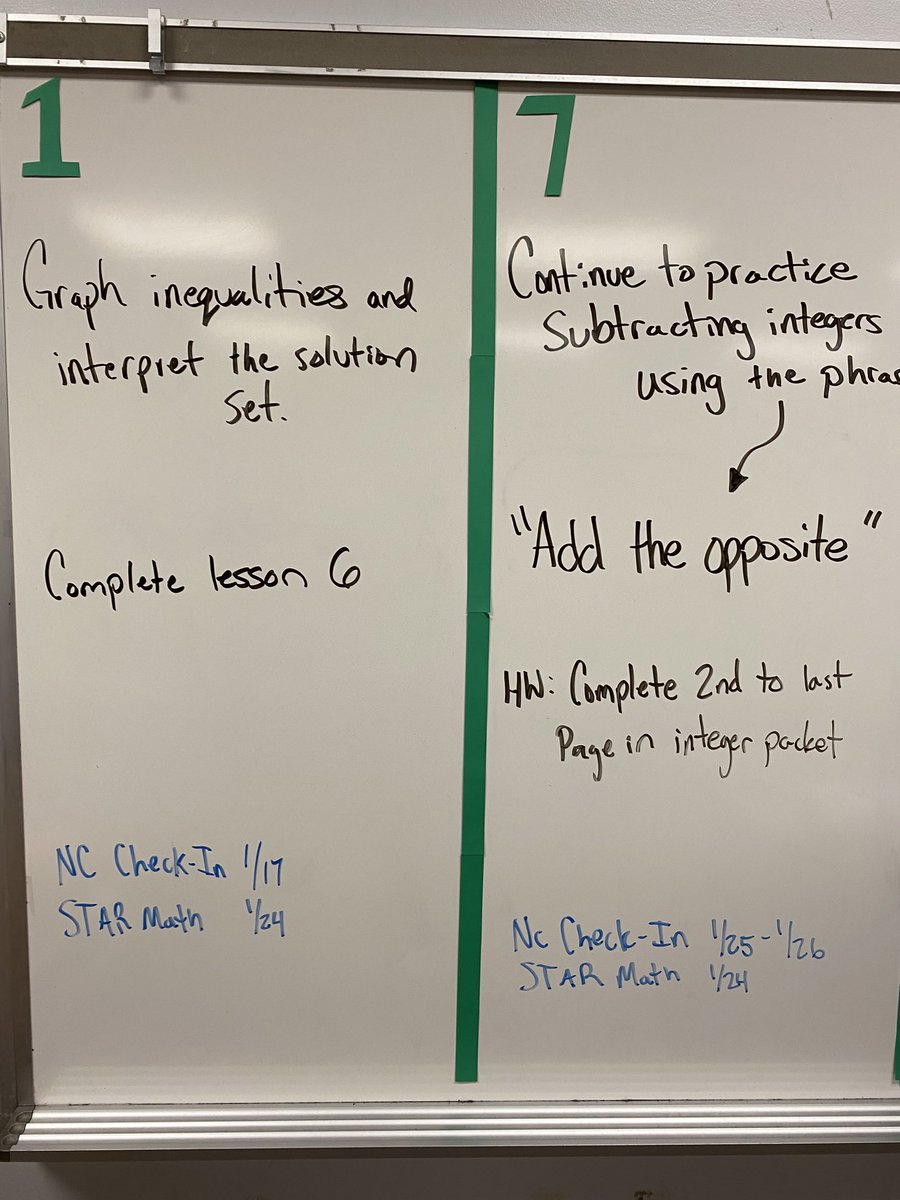 1
Graph inequalities and
interpret the solution
set.
Complete lesson 6
NC Check-In 1/17
STAR Math 1/24
7
Continue to practice
Subtracting integers
using the phras
"Add the opposite"
HW: Complete 2nd to last
Page in integer packet
NC Check-In 1/25-1/26
STAR Math 1/24